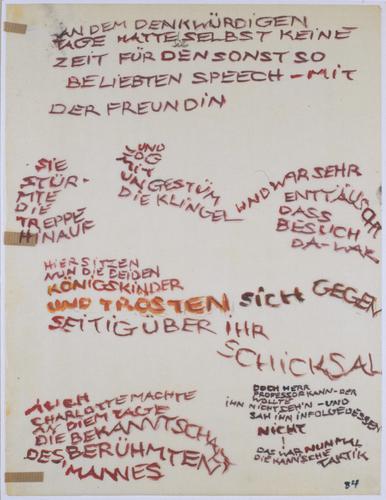 AN DEM DENKWÜRDIGEN
TAGE HATTE SIE SELBST KEINE
ZEIT FÜR DEN SONST SO
BELIEBTEN SPEECH – MIT
DER FREUNDIN
SIE
STÜR-
MTE
DIE
TREPPE
HINAUF
UND
ZOG
MIT
UNGESTÜM
DIE KLINGEL
UND WAR SEHR
ENTTÄUSCHT
DASS
BESUCH
DA-WAR
HIER SITZEN
NUN DIE BEIDEN
KÖNIGSKINDER
UND TRÖSTEN SICH GEGEN
SEITIG ÜBER IHR
SCHICKSAL
AUCH
CHARLOTTE MACHTE
AN DIEM TAGE
DIE BEKANNTSCHAFT
DES BERÜHMTEN
MANNES
DOCH HERR
PROFESSOR KANN-DER
WOLLTE
IHN NICHT SEH'N – UND
SAH IHN INFOLGEDESSEN
NICHT
!
DAS WAR NUN MAL
DIE KANN'SCHE TAKTIK
84